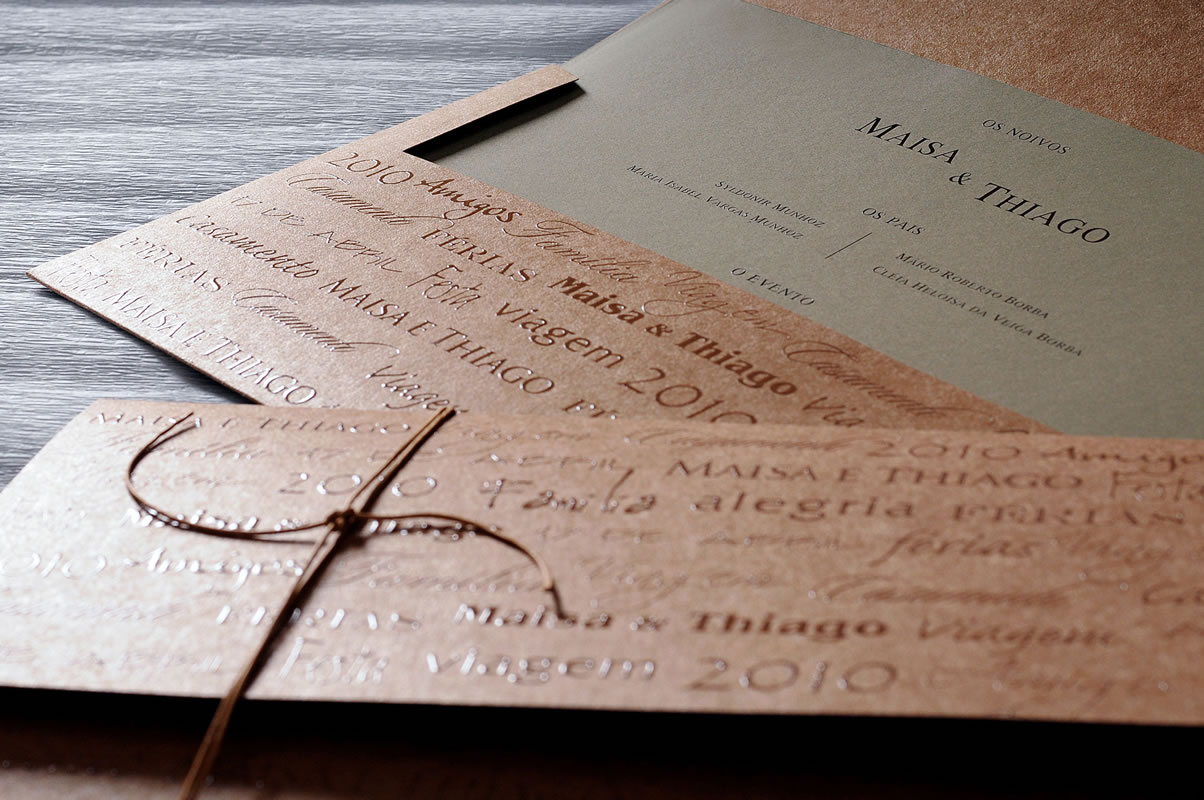 OS NOIVOS
MAISA & THIAGO
OS PAIS
SYLDONIR MUNHOZ
MARIA ISABEL VARGAS MUNHOZ
MARIO ROBERTO BORBA
CLEIA HELOISA DA VEIGA BORBA
O EVENTO
2010 Amigos Família Viagem Casamento
Casamento FERIAS Maisa & Thiago Via
17 DE ABRIL Festa viagem 2010
Casamento MAISA E THIAGO
FERIAS Casamento Viagem
Festa MAISA E THIAGO
MAISA E THIAGO Casamento 2010 Amigos
MAISA E THIAGO Festa
2010 Família alegria FERIAS
Maisa & Thiago 17 DE ABRIL férias
2010 Amigos Família Viagem Casamento
FERIAS Maisa & Thiago Viagem
Festa viagem 2010